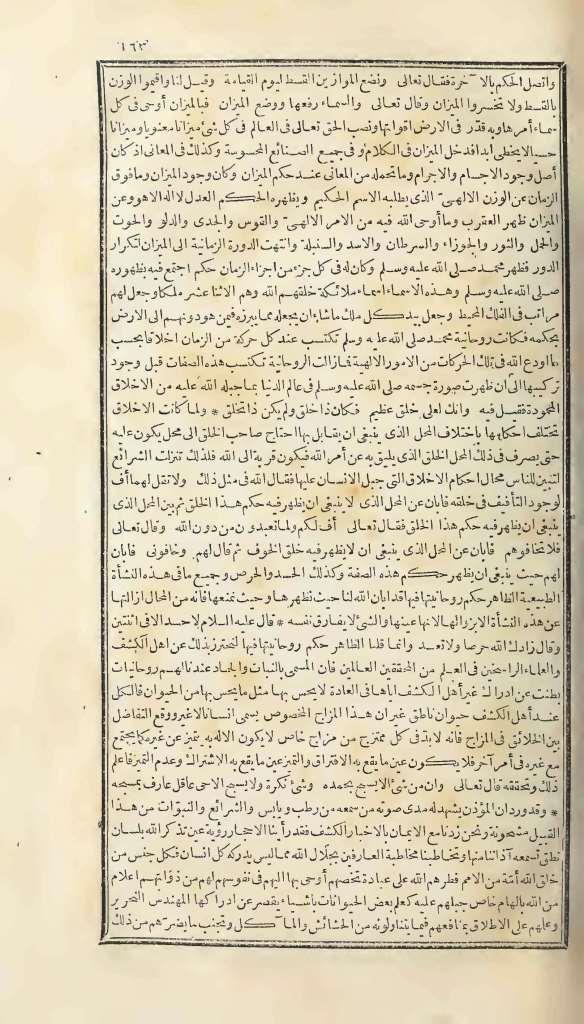 ١٦٣
واتصل الحكم بالآخرة فقال تعالى ونضع الموازين القسط ليوم القيامة وقيل لنا وأقيموا الوزن
بالقسط ولا تخسروا الميزان وقال تعالى والسماء رفعها ووضع الميزان فبالميزان أوحى فى كل
سماء أمرها وبه قدّر فى الارض اقواتها ونصب الحق تعالى فى العالم فى كل شئ ميزانا معنويا وميزانا
حسيا لا يخطى أبدا فدخل الميزان فى الكلام و فى جميع الصنائع المحسوسة وكذلك فى المعانى اذ كان
أصل وجود الاجسام والاجرام وما تحمله من المعانى عند حكم الميزان وكان وجود الميزان وما فوق
الزمان عن الوزن الالهىّ الذى يطلبه الاسم الحكيم ويظهره الحكم العدل لا اله الا هو وعن
الميزان ظهر العقرب وما أوحى الله فيه من الامر الالهىّ والقوس والجدى والدلو والحوت
والحمل والثور والجوزاء والسرطان والاسد والسنبلة وانتهت الدورة الزمانية الى الميزان لتكرار
الدور فظهر محمد صلى الله عليه وسلم وكان له فى كل جزء من اجزاء الزمان حكم اجتمع فيه بظهوره
صلى الله عليه وسلم وهذه الاسماء اسماء ملائكة خلقهم الله وهم الاثنا عشر ملكا وجعل لهم
مراتب فى الفلك المحيط وجعل بيد كل ملك ما شاء ان يجعله مما يبرزه فيمن هو دونهم الى الارض
بحكمه فكانت روحانية محمد صلى الله عليه وسلم تكتسب عند كل حركة من الزمان اخلاقا بحسب
ما اودع الله فى تلك الحركات من الامور الالهية فما زالت الروحانية تكتسب هذه الصفات قبل وجود
تركيبها الى ان ظهرت صورة جسمه صلى الله عليه وسلم فى عالم الدنيا بما جبله الله عليه من الاخلاق
المحمودة فقيل فيه وانك لعلى خلق عظيم فكان ذا خلق ولم يكن ذا تخلق * ولما كانت الاخلاق
تختلف احكامها باختلاف المحل الذى ينبغى ان يقابل بها احتاج صاحب الخلق الى محل يكون عليه
حتى يصرف فى ذلك المحل الخلق الذى يليق به عن أمر الله فيكون قربة الى الله فلذلك تنزلت الشرائع
لتبين للناس محال احكام الاخلاق التى جبل الانسان عليها فقال الله فى مثل ذلك ولا تقل لهما أف
لوجود التأفيف فى خلقه فابان عن المحل الذى لا ينبغى ان يظهر فيه حكم هذا الخلق ثم بين المحل الذى
ينبغى ان يظهر فيه حكم هذا الخلق فقال تعالى أف لكم ولما تعبدون من دون الله وقال تعالى
فلا تخافوهم فابان عن المحل الذى ينبغى ان لا يظهر فيه خلق الخوف ثم قال لهم وخافونى فابان
لهم حيث ينبغى ان يظهر حكم هذه الصفة وكذلك الحسد والحرص وجميع ما فى هذه النشأة
الطبيعية الظاهر حكم روحانيتها فيها قد ابان الله لنا حيث نظهرها وحيث نمنعها فانه من المحال ازالتها
عن هذه النشأة الا بزوالها لانها عينها والشئ لا يفارق نفسه * قال عليه السلام لا حسد الا فى اثنتين
وقال زادك الله حرصا ولا تعد وانما قلنا الظاهر حكم روحانيتها فيها لنحترز بذلك عن اهل الكشف
والعلماء الراسخين فى العلم من المحققين العالمين فان المسمى بالنبات والجماد عندنا لهم روحانيات
بطنت عن ادراك غير أهل الكشف اياها فى العادة لا يحس بها مثل ما يحس بها من الحيوان فالكل
عند أهل الكشف حيوان ناطق غير ان هذا المزاج المخصوص يسمى انسانا لا غير ووقع التفاضل
بين الخلائق فى المزاج فانه لابدّ فى كل ممتزج من مزاج خاص لا يكون الا له به يتميز عن غيره كما يجتمع
مع غيره فى أمر آخر فلا يكون عين ما يقع به الافتراق والتميز عين ما يقع به الاشتراك وعدم التميز فاعلم
ذلك وتحققه قال تعالى وان من شئ الا يسبح بحمده وشئ نكرة ولا يسبح الا حى عاقل عارف بمسبحه
* وقد ورد ان المؤذن يشهد له مدى صوته من سمعه من رطب ويابس والشرائع والنبوّات من هذا
القبيل مشحونة ونحن زدنا مع الايمان بالاخبار الكشف فقد رأينا الاحجار رؤية عين تذكر الله بلسان
نطق تسمعه آذاننا منها وتخاطبنا مخاطبة العارفين بجلال الله مما ليس يدركه كل انسان فكل جنس من
خلق الله أمّة من الامم فطرهم الله على عبادة تخصهم أوحى بها اليهم فى نفوسهم فرسولهم من ذواتهم اعلام
من الله بالهام خاص جبلهم عليه كعلم بعض الحيوانات باشياء يقصر عن ادراكها المهندس النحرير
وعلمهم على الاطلاق بمنافعهم فيما يتناولونه من الحشائش والمآكل وتجنب ما يضرّهم من ذلك